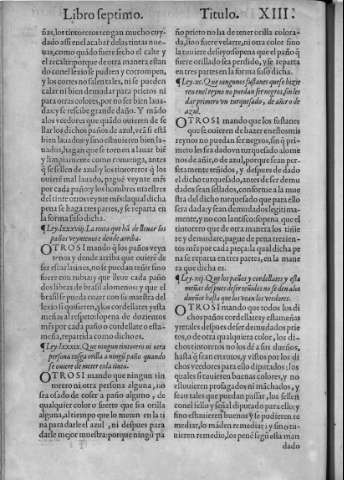 Libro septimo. Titulo. XIII.
ñas, los tintoreros tengan mucho cuy-
dado assi en el acabar delas tintas nue-
uas, como quãdo fuere fecho el calte y
el recalte: porque de otra manera estan
do con el sexo se pudren y corrompen,
y los cortes no salen tales, ni se pueden
calar ni bien demudar para prietos ni
para otras colores, por no ser bien laua-
das: y se rescibe grande daño. Y mãdo
alos veedores que quãdo ouieren de se
llar los dichos paños de azul, veã si estã
bien lauados: y sino estuuieren bien la-
uados, hagan que se tornen a lauar biẽ
y limpiamente como conuenga, antes
q̃ se sellen de azul: y los tintoreros q̃ los
ouierẽ mal lauado, paguẽ veynte mr̃s
por cada paño: y los hombres maestres
del tinte otros veynte mr̃s la qual dicha
pena se haga tres partes, y se reparta en
la forma suso dicha.
¶ Ley. lxxxviij. La rota que hã de lleuar los
paños veyntenes dende arriba.
OTROSI mando q̃ los paños veyn-
tenos y dende arriba que ouierẽ de
ser escarlatines, no se puedan teñir sino
fuere con rubia: y que lleue cada paño
dos libras de brasil alomenos: y que el
brasil se pueda cozer con su maestra del
sexo si quisierẽ, y los cordellates y esta-
meñas al respecto so pena de dozientos
mr̃s por cada paño o cordellate o esta-
meña, repartida como dicho es.
¶ Ley. lxxxix. Que ningun tintorero ni otra
persona cosga orilla a ningũ paño quando
se ouiere de meter enla tina.
OTROSI mando que ningun tin
torero ni otra persona alguna, no
sea osado de coser a paño alguno, de
qualquier color o suerte que sea orilla
alguna, al tiempo que lo meten en la ti
na para darle el azul, ni despues para
darle mejor muestra: porque ningũ pa
ño prieto no la de tener orilla colora-
da, sino fuere velarte, ni otra color sino
la tuuiere de suyo so pena que el paño q̃
fuere orillado sea perdido, y se reparta
en tres partes en la forma suso dicha.
¶ Ley. xc. Que ningunos fustanes que se hizie
ren enel reyno no puedan ser negros, sin les
dar primero vn turquesado, de añir o de
azul.
OTROSI mando que los fustanes
que se ouieren de hazer en estos mis
reynos no puedan ser negros, sin q̃ pri-
mero les sea dado vn turquesado alome
nos de añir, o de azul, porque sean per-
fectamente teñidos, y despues de dado
el dicho turquesado, antes de ser demu
dados sean sellados, conforme a la mue
stra del dicho turquesado que para ello
sea dada: y sean demudados legitimamen-
te, y no con lantisco: so pena, que el
tintorero que de otra manera los tiñie
re y demudare, pague de pena trezien-
tos mr̃s por cada pieça: la qual dicha pe
na se reparta en tres partes, en la mane
ra que dicha es.
¶ Ley. xcj. Que los paños y cordellates y esta
meñas despues de ser teñidos no se den a los
dueños hasta que los vean los veedores.
OTROSI mando que todos los di
chos paños cordellates y estameñas
y retales despues de ser demudados prie
tos, o de otra qualquier color, los di-
chos tintoreros no los dẽ a sus dueños,
hasta q̃ sean enxutos, y vistos por los di
chos veedores para ello diputados: los
quales si tuuieren buenas colores, y no
estuuieren profaçados ni mãchados, y
sean tales que puedan passar, los sellen
con el sello y señal diputado para ello: y
sino estuuieren buenos y se pudieren re
mediar, lo mãden remediar: y sino tu-
uieren remedio, los penẽ segũ esta man
dado